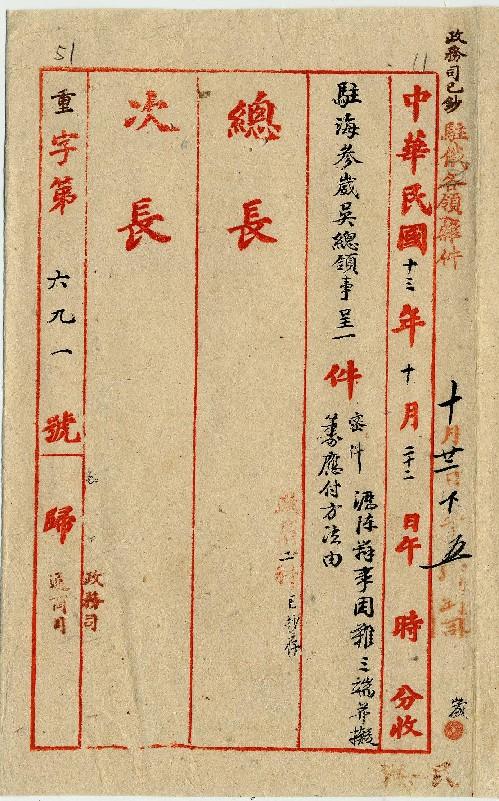 51
11
政務司已鈔
駐俄各領癣件
十月廿二日下午五
箴
中華民國十三年十月二十二日午時分收
駐海參崴吳總領事呈一件
密件 瀝陳辦事困難三端並擬
籌應付方法由
二科已抄存
總長
次長
重字第六九一號歸
政務司
通商司